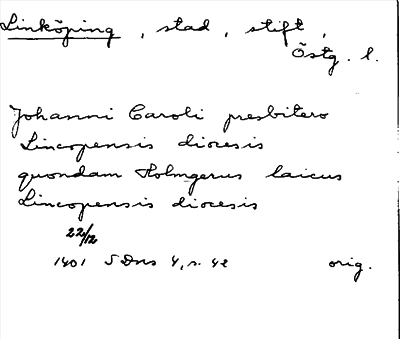 Linköping, stad, stift,
Östg. l.
Johanni Caroli presbitero
Lincopensis diocesis
quondam Holmgerus laicus
Lincopensis diocesis
22/12
1401 SDns 4, s. 42 orig.